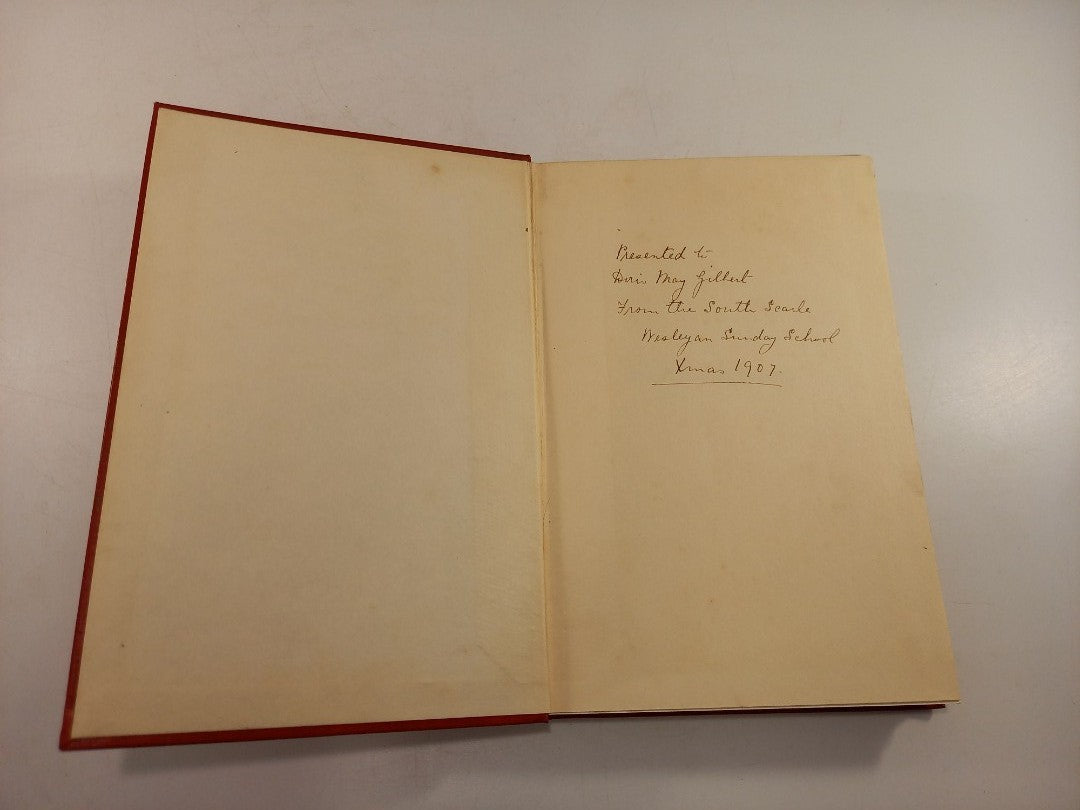 Presented to
Doris May Gilbert
From the South Scarle
Wesleyan Sunday School
Xmas 1907.